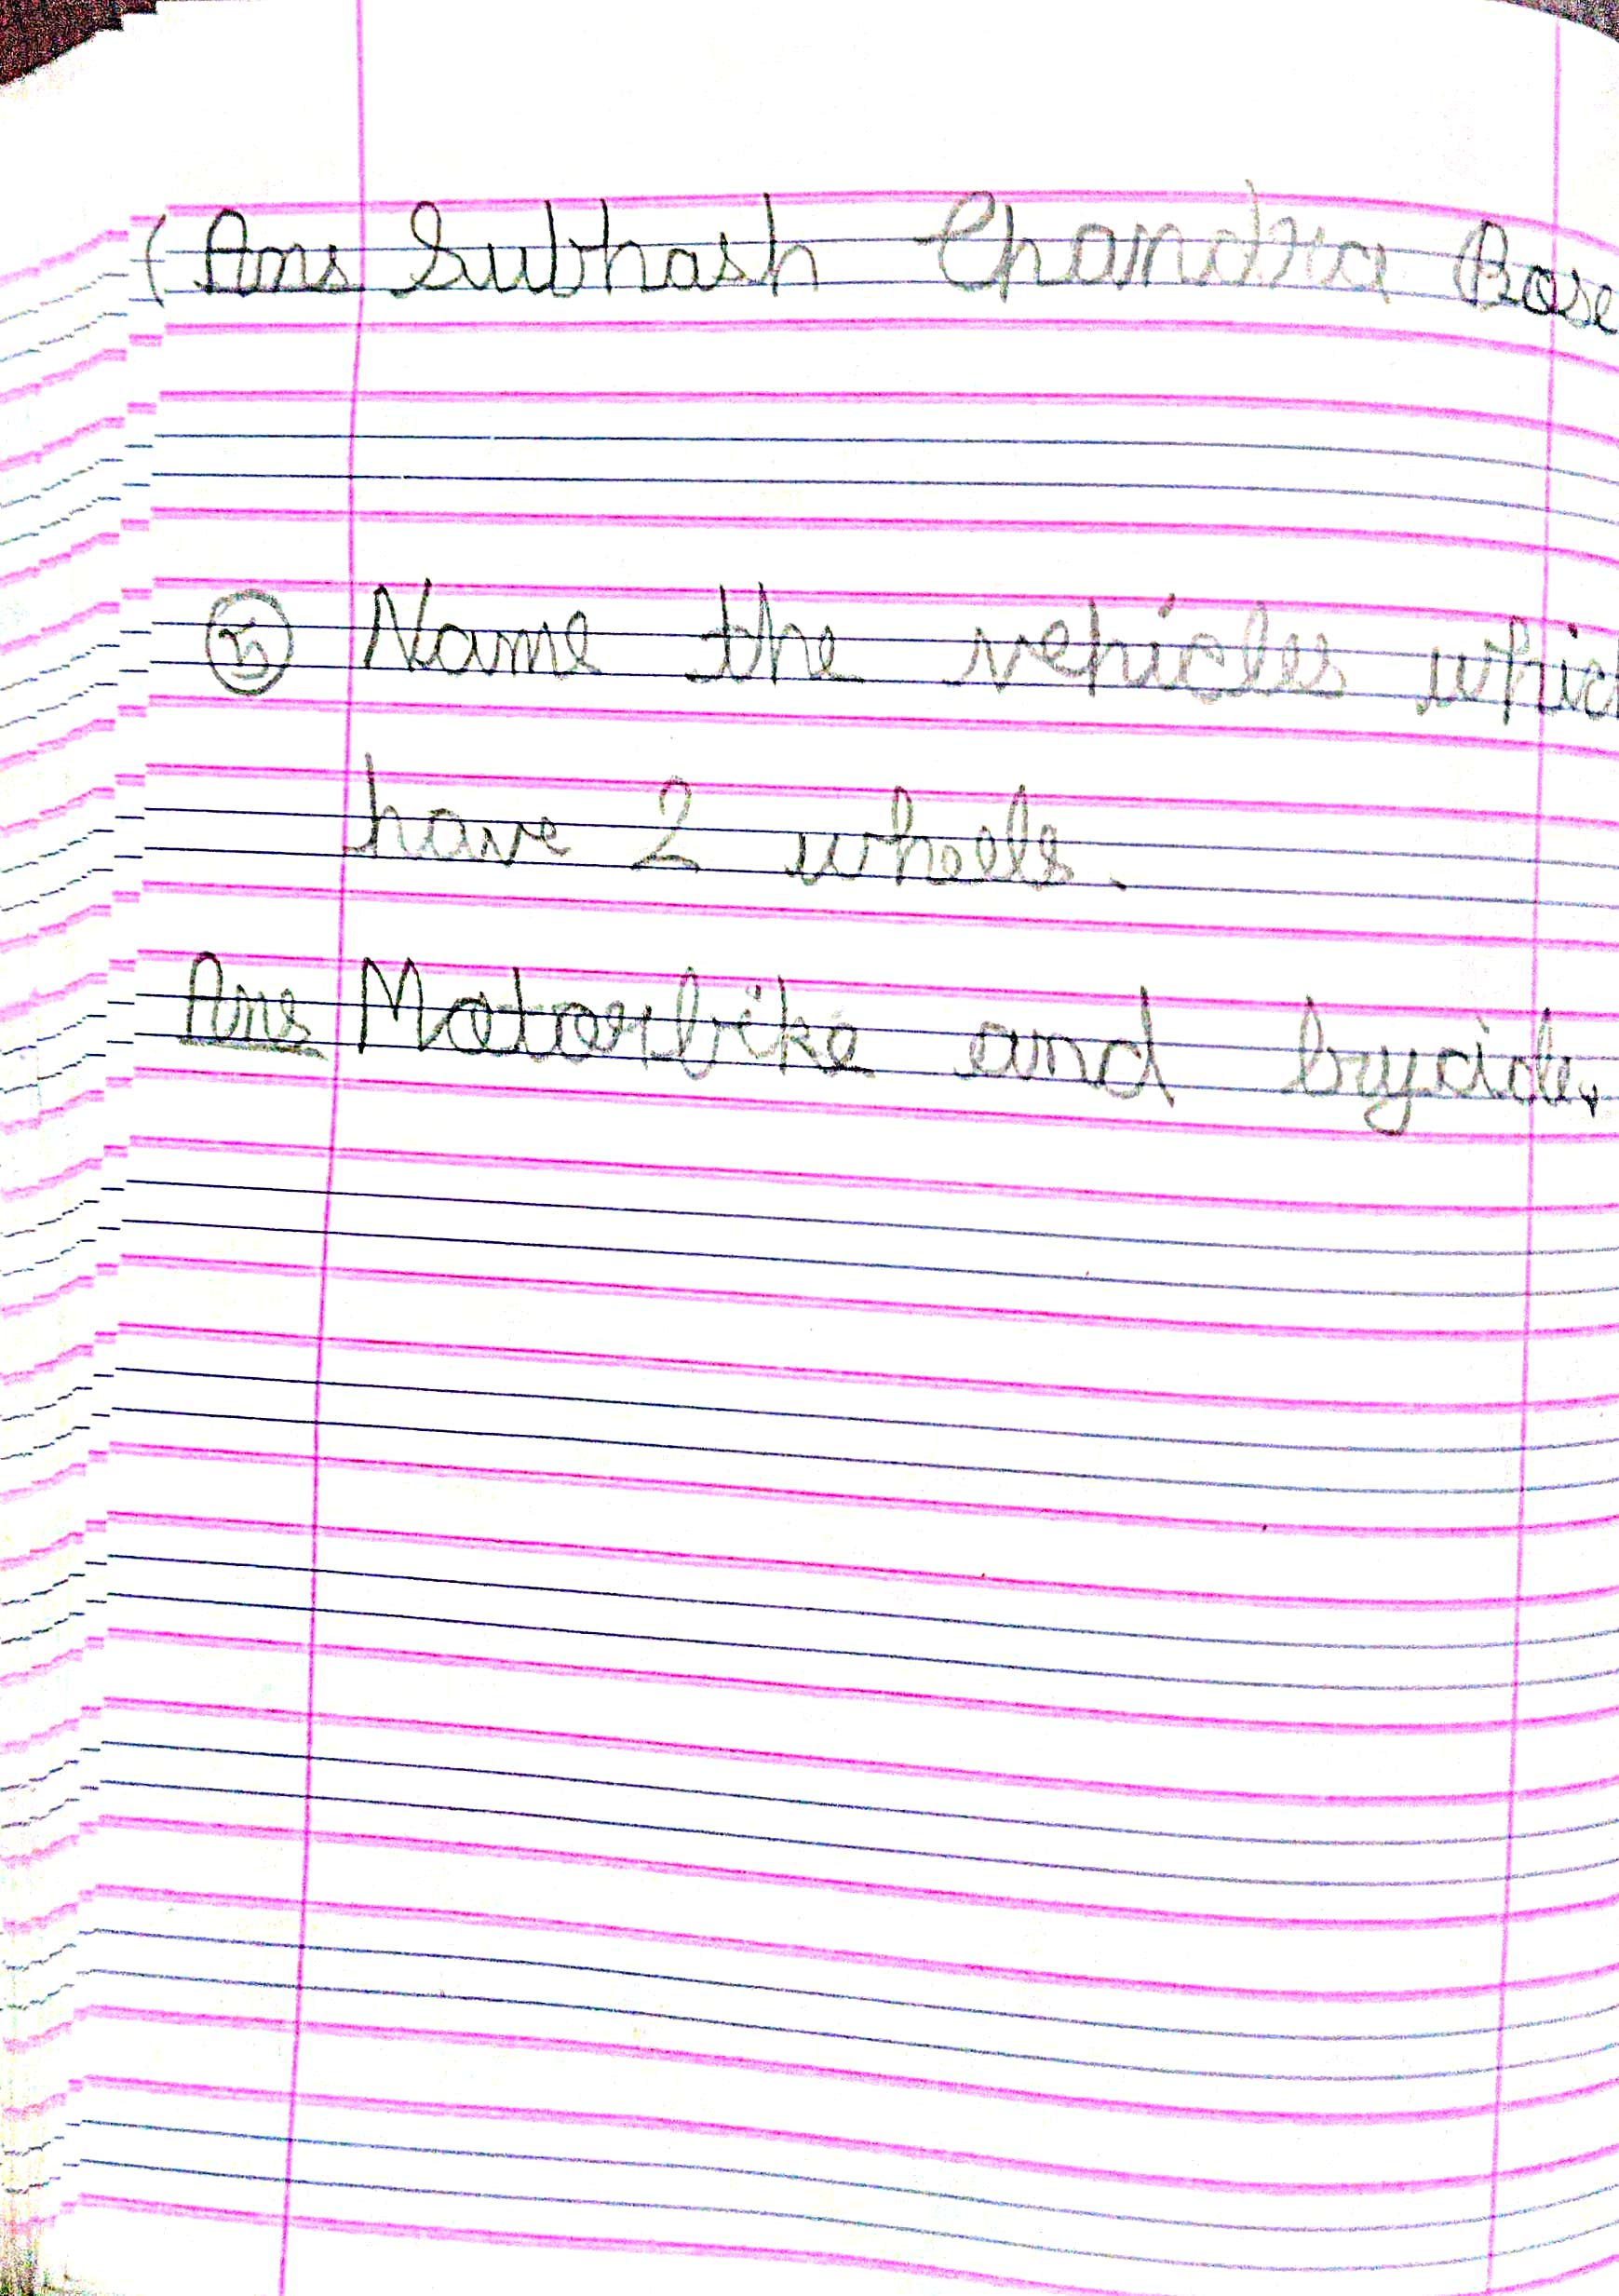 ( Ans Subhash Chandra Bose
⑤ Name the vehicles which
have 2 wheels.
Ans Motorbike and bycicle.